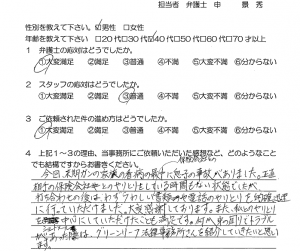 担当者 弁護士 申 景秀
性別を教えて下さい。☑男性 □女性
年齢を教えて下さい。□20代□30代☑40代□50代□60代□70才以上
1 弁護士の応対はどうでしたか。
①大変満足 ②満足 ③普通 ④不満 ⑤大変不満 ⑥分からない
2 スタッフの応対はどうでしたか。
①大変満足 ②満足 ③普通 ④不満 ⑤大変不満 ⑥分からない
3 ご依頼された件の進め方はどうでしたか。
①大変満足 ②満足 ③普通 ④不満 ⑤大変不満 ⑥分からない
4 上記1～3の理由、当事務所にご依頼いただいた感想など、どのようなこと
でも結構ですからお書きください。
今回、末期ガンの 看病の最中に息子の事故がありました。正直
相手の保険会社とのやりとりをしている時間もない状態でしたが、
打ち合わせの後は、わずらわしい書類や電話のやりとりを
に行っていただけました。大変感謝しております。また、私とのやりとり
は にしていただけたことも、満足です。
があった際は、グリーンリーフ法律事務所さんを紹介していきたいと思い
ます。